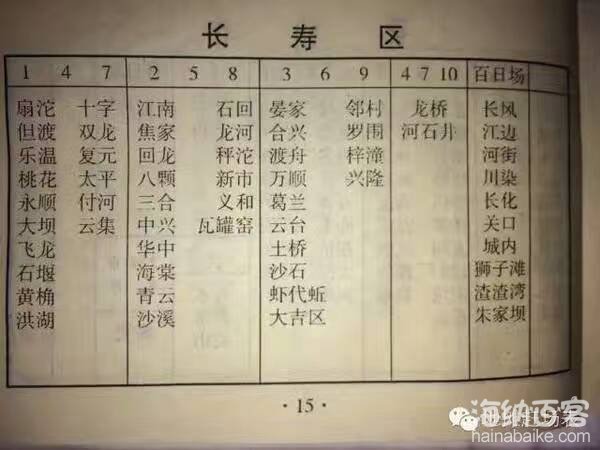 长寿区
1 4 7 2 5 8 3 6 9 4 7 10 百日场
扇沱 十字 江南 石回 晏家 邻村 龙桥 长风
但渡 双龙 焦家 龙河 合兴 罗围 河石井 江边
乐温 复元 回龙 秤沱 渡舟 梓潼 河街
桃花 太平 八颗 新市 万顺 兴隆 川染
永顺 付河 三合 义和 葛兰 长化
大坝 云集 中兴 瓦罐窑 云台 关口
飞龙 华中 土桥 城内
石堰 海棠 沙石 狮子滩
黄桷 青云 虾代蚯 渣渣湾
洪湖 沙溪 大吉区 朱家坝
·15·
海纳百客
hainabaike.com